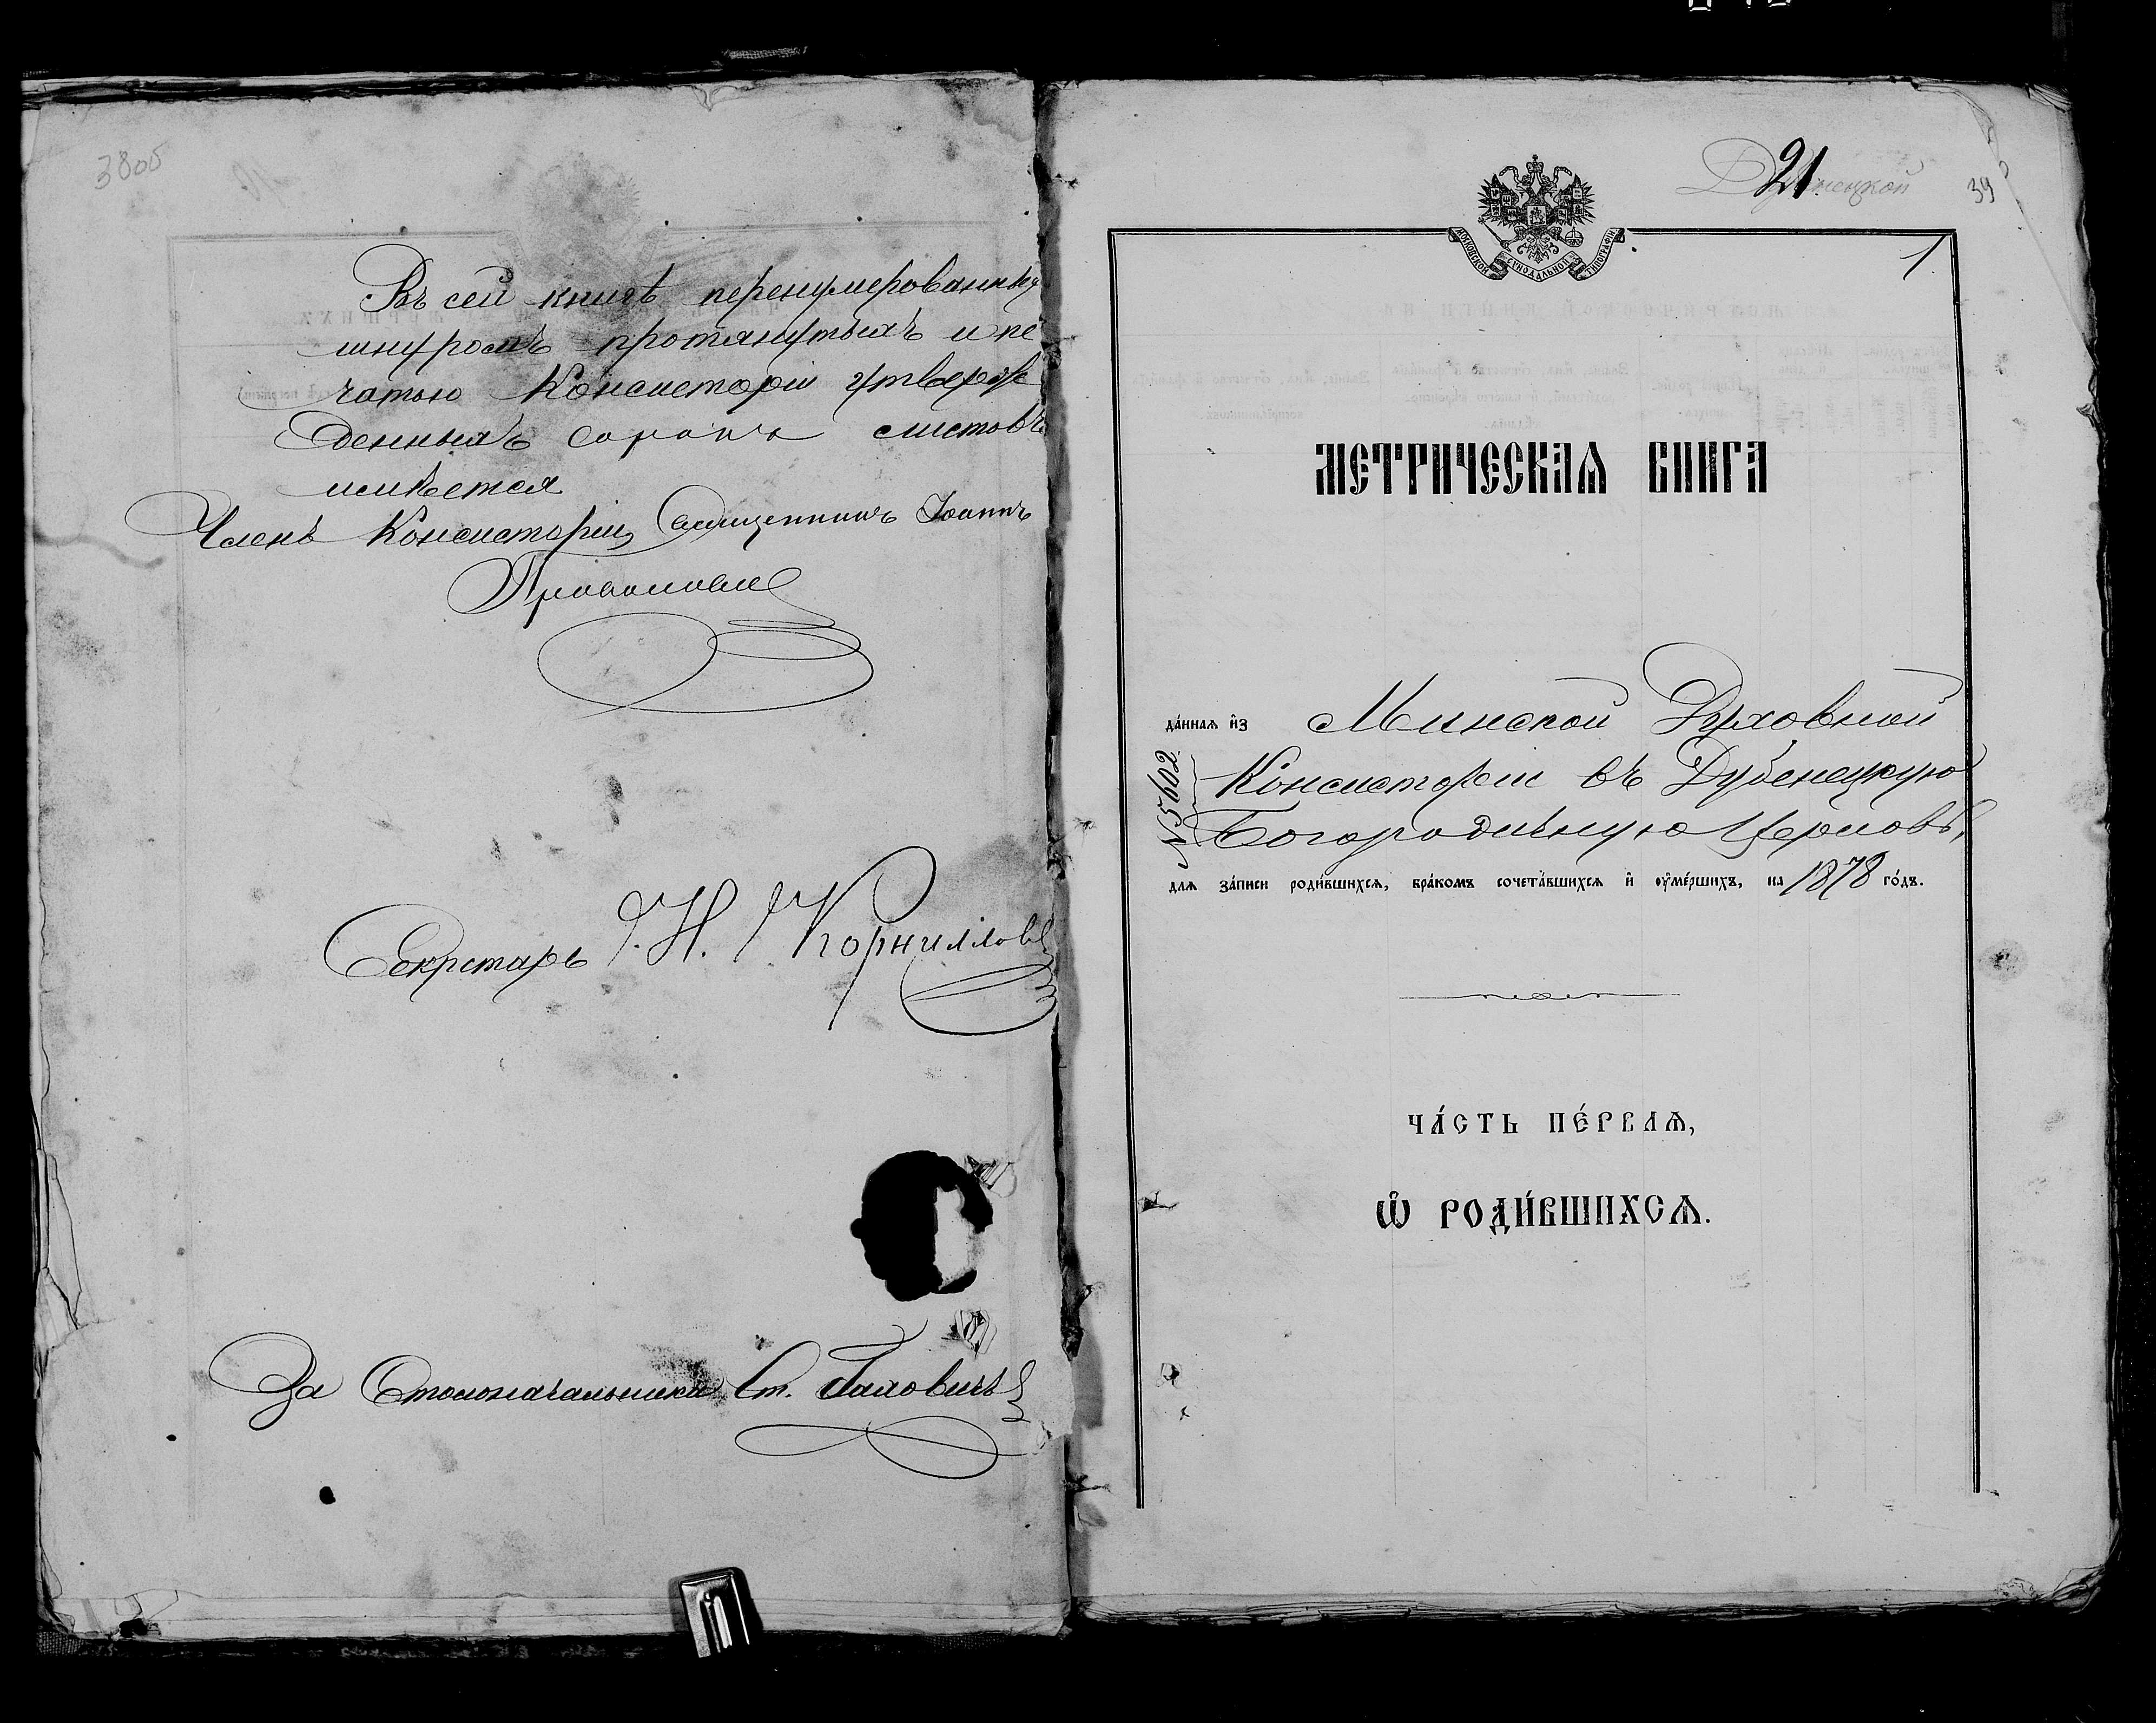 3805
Въ сей книгѣ перенумерованныхъ
шнуромъ протянутыхъ и пе
чатью Консисторіи утверж
денныхъ сорокъ листовъ
имѣется
Членъ Консисторіи, Священникъ Іоаннъ
Секретарь Н. Корниловъ
За Столоначальника Ст.
21
39
1
МОСКОВСКОЙ СУНОДАЛЬНОЙ ТИПОГРАФІИ
МЕТРИЧЕСКАѦ КНИГА
да́ннаѧ и҆з Минской Духовной
Консисторіи въ Дубенецкую
№ 5602
Богородичную Церковь,
длѧ за́писи роди́вшихсѧ, бра́комъ сочета́вшихсѧ и҆ ᲂу҆ме́ршихъ, на 1878 го́дъ.
ЧА́СТЬ ПЕ́РВАѦ,
Ѡ҆ РОДИ́ВШИХСѦ.